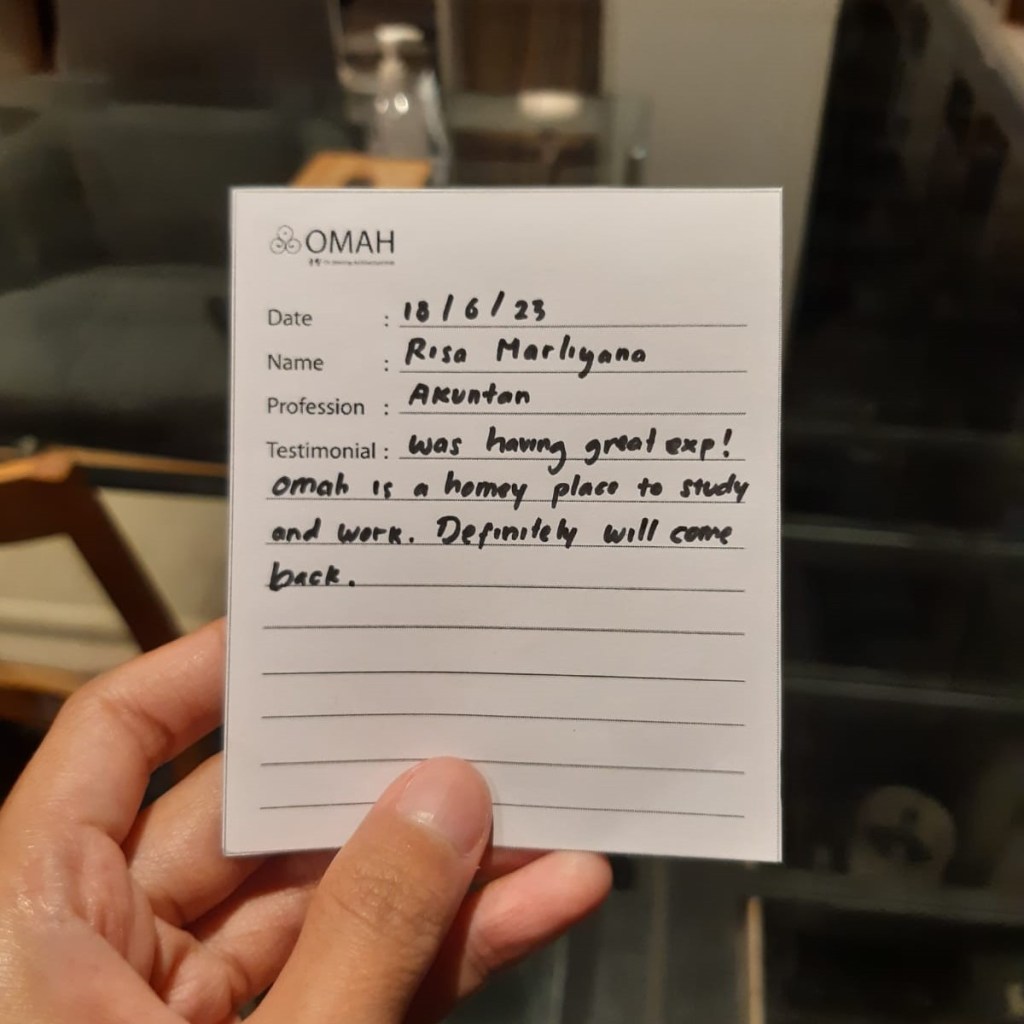 OMAH
Date : 18/6/23
Name : Risa Marliyana
Profession : Akuntan
Testimonial : was having great exp!
omah is a homey place to study
and work. Definitely will come
back.